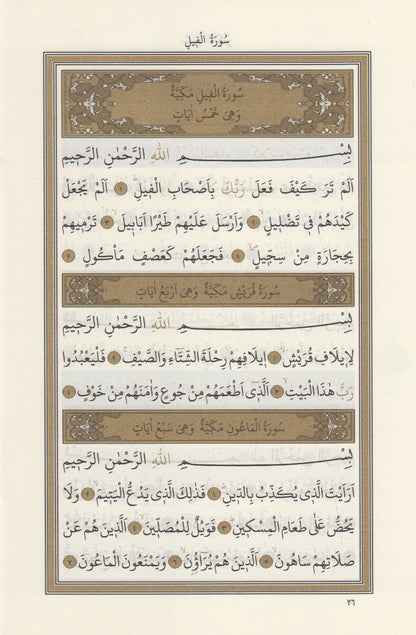 سورة الفيل
سُورَةُ الْفِيلِ مَكِّيَّةٌ
وَهِيَ خَمْسُ اٰيَاتٍ
بِسْمِ اللهِ الرَّحْمٰنِ الرَّحِيمِ
اَلَمْ تَرَ كَيْفَ فَعَلَ رَبُّكَ بِاَصْحَابِ الْفِيلِۜ ١ اَلَمْ يَجْعَلْ
كَيْدَهُمْ فِي تَضْلِيلٍ ٢ وَاَرْسَلَ عَلَيْهِمْ طَيْرًا اَبَابِيلَ ٣ تَرْمِيهِمْ
بِحِجَارَةٍ مِنْ سِجِّيلٍ ٤ فَجَعَلَهُمْ كَعَصْفٍ مَأْكُولٍ ٥
سُورَةُ قُرَيْشٍ مَكِّيَّةٌ وَهِيَ اَرْبَعُ اٰيَاتٍ
بِسْمِ اللهِ الرَّحْمٰنِ الرَّحِيمِ
لِاِيلَافِ قُرَيْشٍ ١ اِيلَافِهِمْ رِحْلَةَ الشِّتَاءِ وَالصَّيْفِ ٢ فَلْيَعْبُدُوا
رَبَّ هٰذَا الْبَيْتِ ٣ اَلَّذِي اَطْعَمَهُمْ مِنْ جُوعٍ وَاٰمَنَهُمْ مِنْ خَوْفٍ ٤
سُورَةُ الْمَاعُونِ مَكِّيَّةٌ وَهِيَ سَبْعُ اٰيَاتٍ
بِسْمِ اللهِ الرَّحْمٰنِ الرَّحِيمِ
اَرَاَيْتَ الَّذِي يُكَذِّبُ بِالدِّينِ ١ فَذٰلِكَ الَّذِي يَدُعُّ الْيَتِيمَ ٢ وَلَا
يَحُضُّ عَلٰى طَعَامِ الْمِسْكِينِ ٣ فَوَيْلٌ لِلْمُصَلِّينَ ٤ اَلَّذِينَ هُمْ عَنْ
صَلَاتِهِمْ سَاهُونَ ٥ اَلَّذِينَ هُمْ يُرَاؤُنَ ٦ وَيَمْنَعُونَ الْمَاعُونَ ٧
٢٦